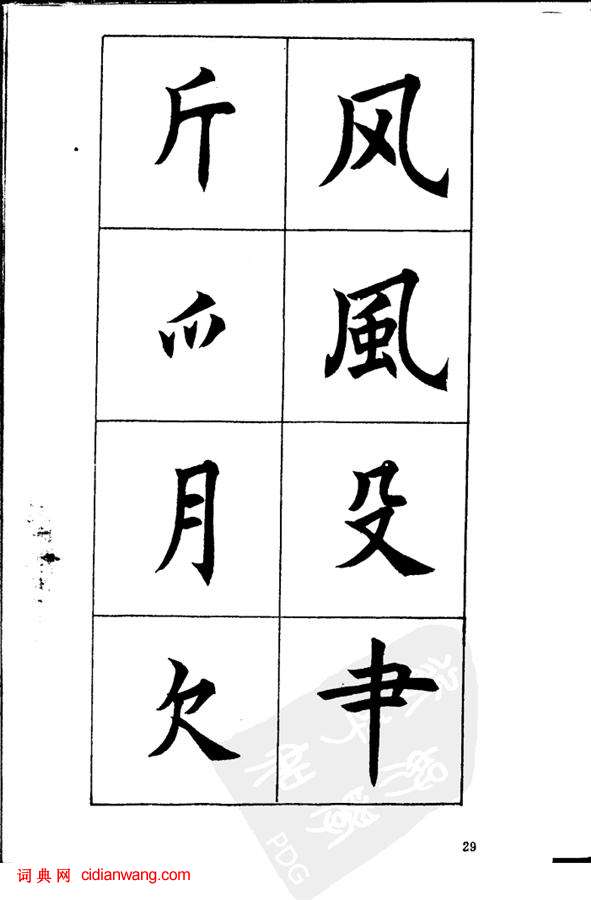 风
風
殳
肀
斤
爫
月
欠
29
词典网 cidianwang.com
PDG